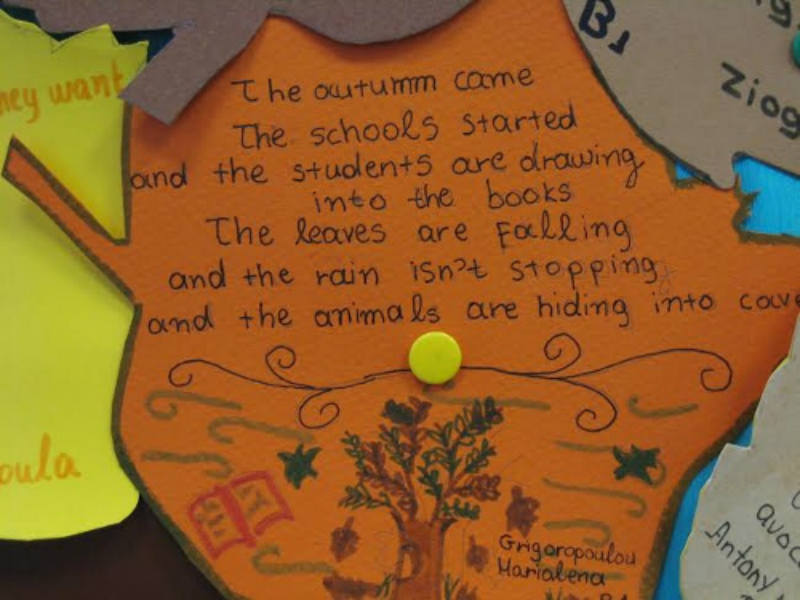 The autumm came
The schools started
and the students are drawing
into the books
The leaves are falling
and the rain isn't stopping
and the animals are hiding into
Grigoropoulou
Marialena
B1
hey want
oula
B1
Ziog
Antony